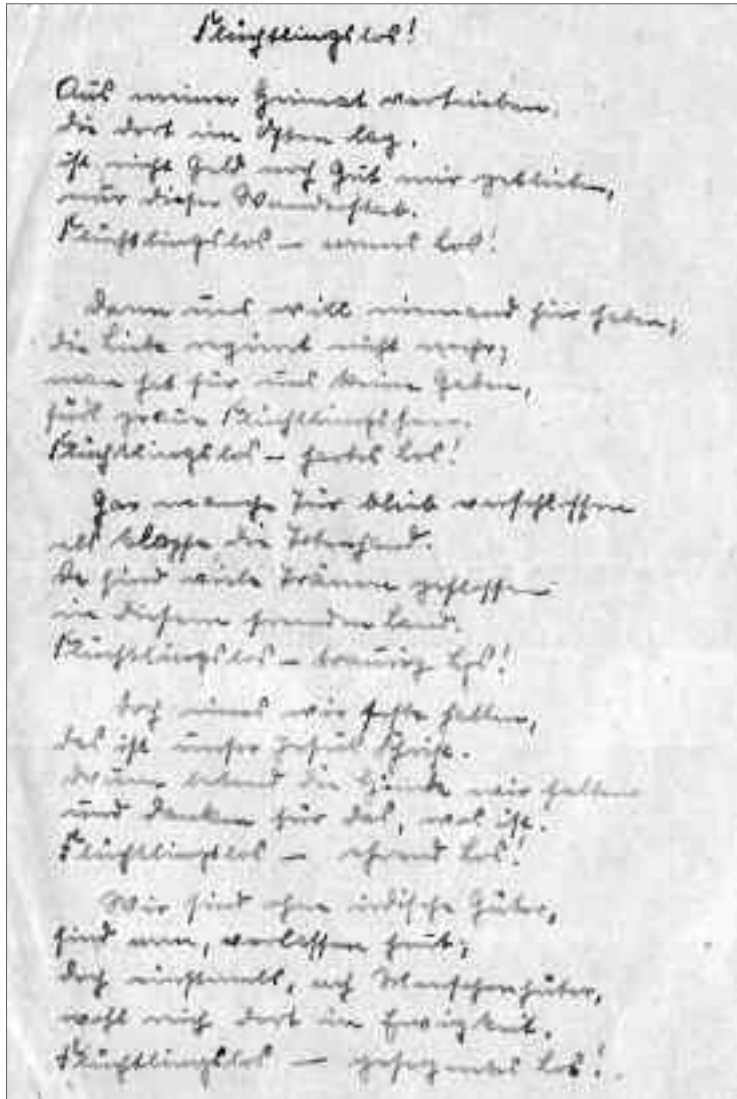 Flüchtlingslos!
Aus meiner Heimat vertrieben,
die dort im Osten lag,
ist nicht Geld noch Gut mir geblieben,
nur dieser Wanderstab.
Flüchtlingslos – armes Los!
Denn uns will niemand hier haben;
die Liebe regieret nicht mehr;
man hat für uns keine Gaben,
fürs graue Flüchtlingsheer.
Flüchtlingslos – hartes Los!
Gar manche Tür blieb verschlossen
als klopfe die Totenhand.
Da sind viele Tränen geflossen
in diesem fremden Land.
Flüchtlingslos – traurig Los!
Doch eines wir feste halten,
das ist unser Jesus Christ.
Drum betend die Hände wir falten
und danken für das, was ist.
Flüchtlingslos – ehrend Los!
Wir sind ohne irdische Güter,
sind arm, verlassen heut;
doch einstmals, ach Menschenhüter,
wohl mich dort in Ewigkeit.
Flüchtlingslos – gesegnetes Los!